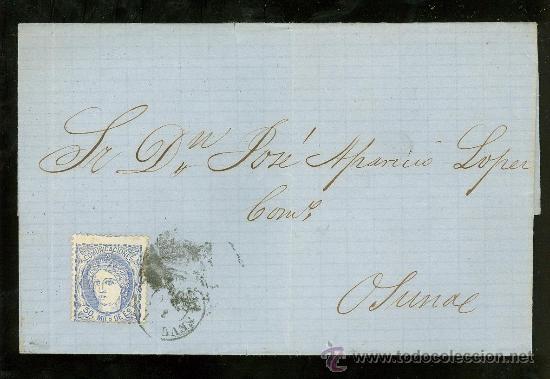 Sr Dn José Aparicio Lopez
Com.e
Osuna
COMUNICACIONES
50 MILS DE E
todocoleccion.net